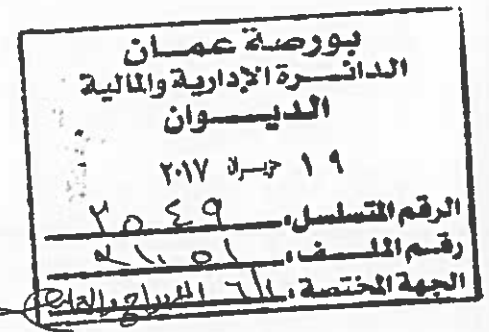 بورصة عمان
الدائرة الإدارية والمالية
الديوان
١٩ حزيران ٢٠١٧
الرقم المتسلسل: ٣٥٤٩
رقم الملف:
الجهة المختصة: